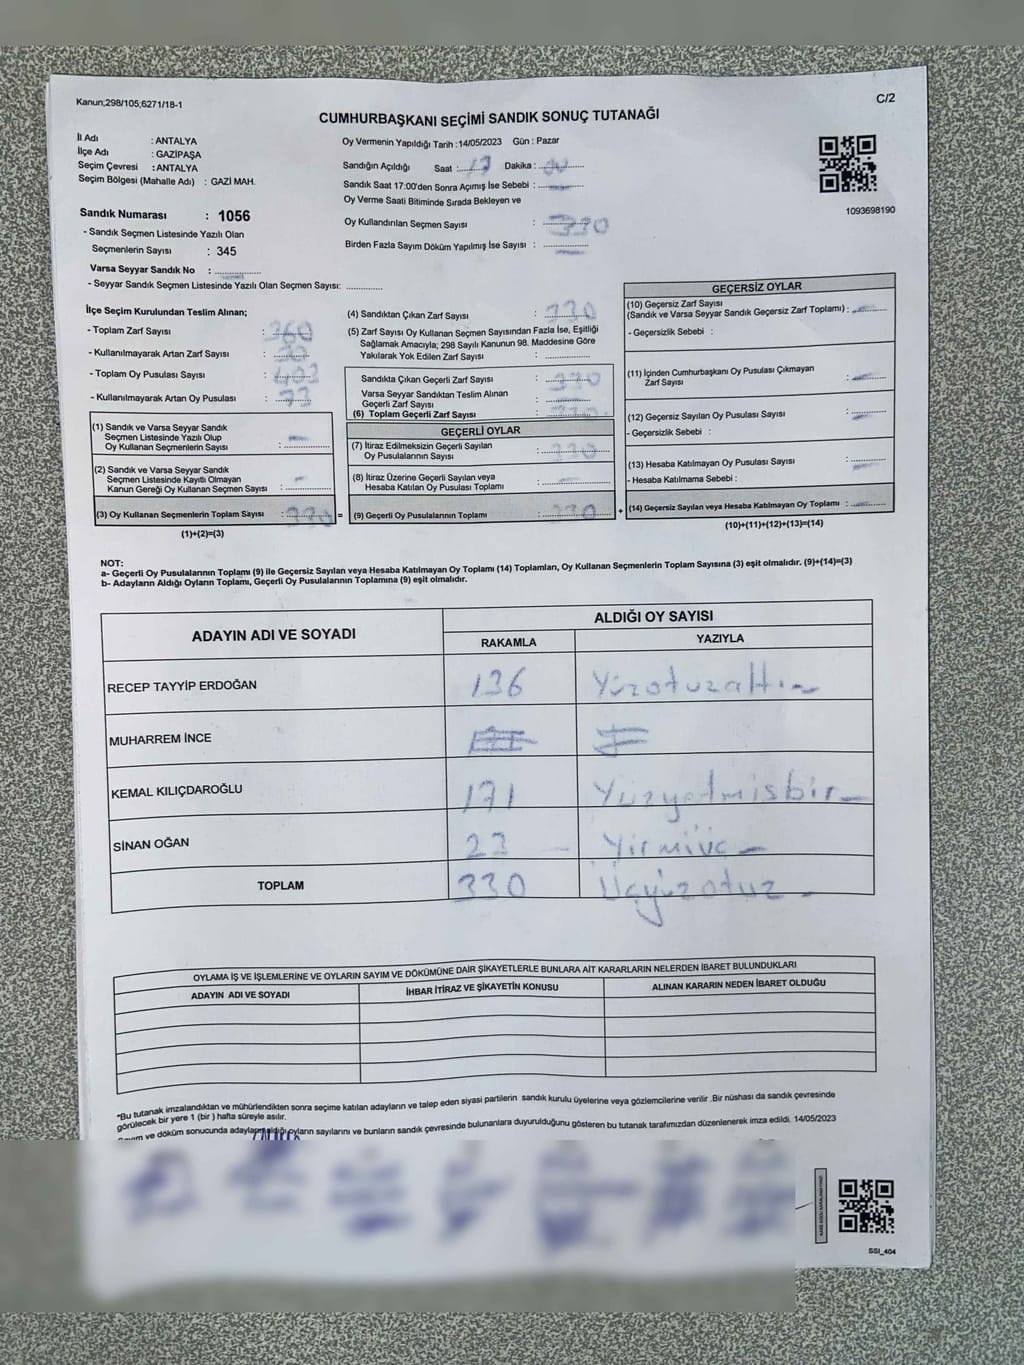 Kanun;298/105;6271/18-1
C/2
CUMHURBAŞKANI SEÇİMİ SANDIK SONUÇ TUTANAĞI
İl Adı : ANTALYA
İlçe Adı : GAZİPAŞA
Seçim Çevresi : ANTALYA
Seçim Bölgesi (Mahalle Adı) : GAZİ MAH.
Oy Vermenin Yapıldığı Tarih :14/05/2023 Gün : Pazar
Sandığın Açıldığı Saat :....17 Dakika :
Sandık Saat 17:00'den Sonra Açımış İse Sebebi :
Oy Verme Saati Bitiminde Sırada Bekleyen ve
Oy Kullandırılan Seçmen Sayısı : 330
Birden Fazla Sayım Döküm Yapılmış İse Sayısı :
1093698190
Sandık Numarası : 1056
- Sandık Seçmen Listesinde Yazılı Olan
Seçmenlerin Sayısı : 345
Varsa Seyyar Sandık No :
- Seyyar Sandık Seçmen Listesinde Yazılı Olan Seçmen Sayısı:
İlçe Seçim Kurulundan Teslim Alınan;
- Toplam Zarf Sayısı : 360
- Kullanılmayarak Artan Zarf Sayısı : 30
- Toplam Oy Pusulası Sayısı : 403
- Kullanılmayarak Artan Oy Pusulası : 73
(1) Sandık ve Varsa Seyyar Sandık
Seçmen Listesinde Yazılı Olup
Oy Kullanan Seçmenlerin Sayısı :
(2) Sandık ve Varsa Seyyar Sandık
Seçmen Listesinde Kayıtlı Olmayan
Kanun Gereği Oy Kullanan Seçmen Sayısı :
(3) Oy Kullanan Seçmenlerin Toplam Sayısı : 330 =
(1)+(2)=(3)
(4) Sandıktan Çıkan Zarf Sayısı : 330
(5) Zarf Sayısı Oy Kullanan Seçmen Sayısından Fazla İse, Eşitliği
Sağlamak Amacıyla; 298 Sayılı Kanunun 98. Maddesine Göre
Yakılarak Yok Edilen Zarf Sayısı :
Sandıkta Çıkan Geçerli Zarf Sayısı : 330
Varsa Seyyar Sandıktan Teslim Alınan
Geçerli Zarf Sayısı :
(6) Toplam Geçerli Zarf Sayısı : 330
GEÇERLİ OYLAR
(7) İtiraz Edilmeksizin Geçerli Sayılan
Oy Pusulalarının Sayısı : 330
(8) İtiraz Üzerine Geçerli Sayılan veya
Hesaba Katılan Oy Pusulası Toplamı :
(9) Geçerli Oy Pusulalarının Toplamı : 330 +
GEÇERSİZ OYLAR
(10) Geçersiz Zarf Sayısı
(Sandık ve Varsa Seyyar Sandık Geçersiz Zarf Toplamı) :
- Geçersizlik Sebebi :
(11) İçinden Cumhurbaşkanı Oy Pusulası Çıkmayan
Zarf Sayısı :
(12) Geçersiz Sayılan Oy Pusulası Sayısı :
- Geçersizlik Sebebi :
(13) Hesaba Katılmayan Oy Pusulası Sayısı :
- Hesaba Katılmama Sebebi :
(14) Geçersiz Sayılan veya Hesaba Katılmayan Oy Toplamı :
(10)+(11)+(12)+(13)=(14)
NOT:
a- Geçerli Oy Pusulalarının Toplamı (9) ile Geçersiz Sayılan veya Hesaba Katılmayan Oy Toplamı (14) Toplamları, Oy Kullanan Seçmenlerin Toplam Sayısına (3) eşit olmalıdır. (9)+(14)=(3)
b- Adayların Aldığı Oyların Toplamı, Geçerli Oy Pusulalarının Toplamına (9) eşit olmalıdır.
ADAYIN ADI VE SOYADI
ALDIĞI OY SAYISI
RAKAMLA YAZIYLA
RECEP TAYYİP ERDOĞAN 136 Yüzotuzaltı
MUHARREM İNCE
KEMAL KILIÇDAROĞLU 171 Yüzyetmisbir
SİNAN OĞAN 23 Yirmiüç
TOPLAM 330 Üçyüzotuz
OYLAMA İŞ VE İŞLEMLERİNE VE OYLARIN SAYIM VE DÖKÜMÜNE DAİR ŞİKAYETLERLE BUNLARA AİT KARARLARIN NELERDEN İBARET BULUNDUKLARI
ADAYIN ADI VE SOYADI İHBAR İTİRAZ VE ŞİKAYETİN KONUSU ALINAN KARARIN NEDEN İBARET OLDUĞU
*Bu tutanak imzalandıktan ve mühürlendikten sonra seçime katılan adayların ve talep eden siyasi partilerin sandık kurulu üyelerine veya gözlemcilerine verilir .Bir nüshası da sandık çevresinde
görülecek bir yere 1 (bir ) hafta süreyle asılır.
ve döküm sonucunda adayların aldığı oyların sayılarını ve bunların sandık çevresinde bulunanlara duyurulduğunu gösteren bu tutanak tarafımızdan düzenlenerek imza edildi. 14/05/2023
SSI_404